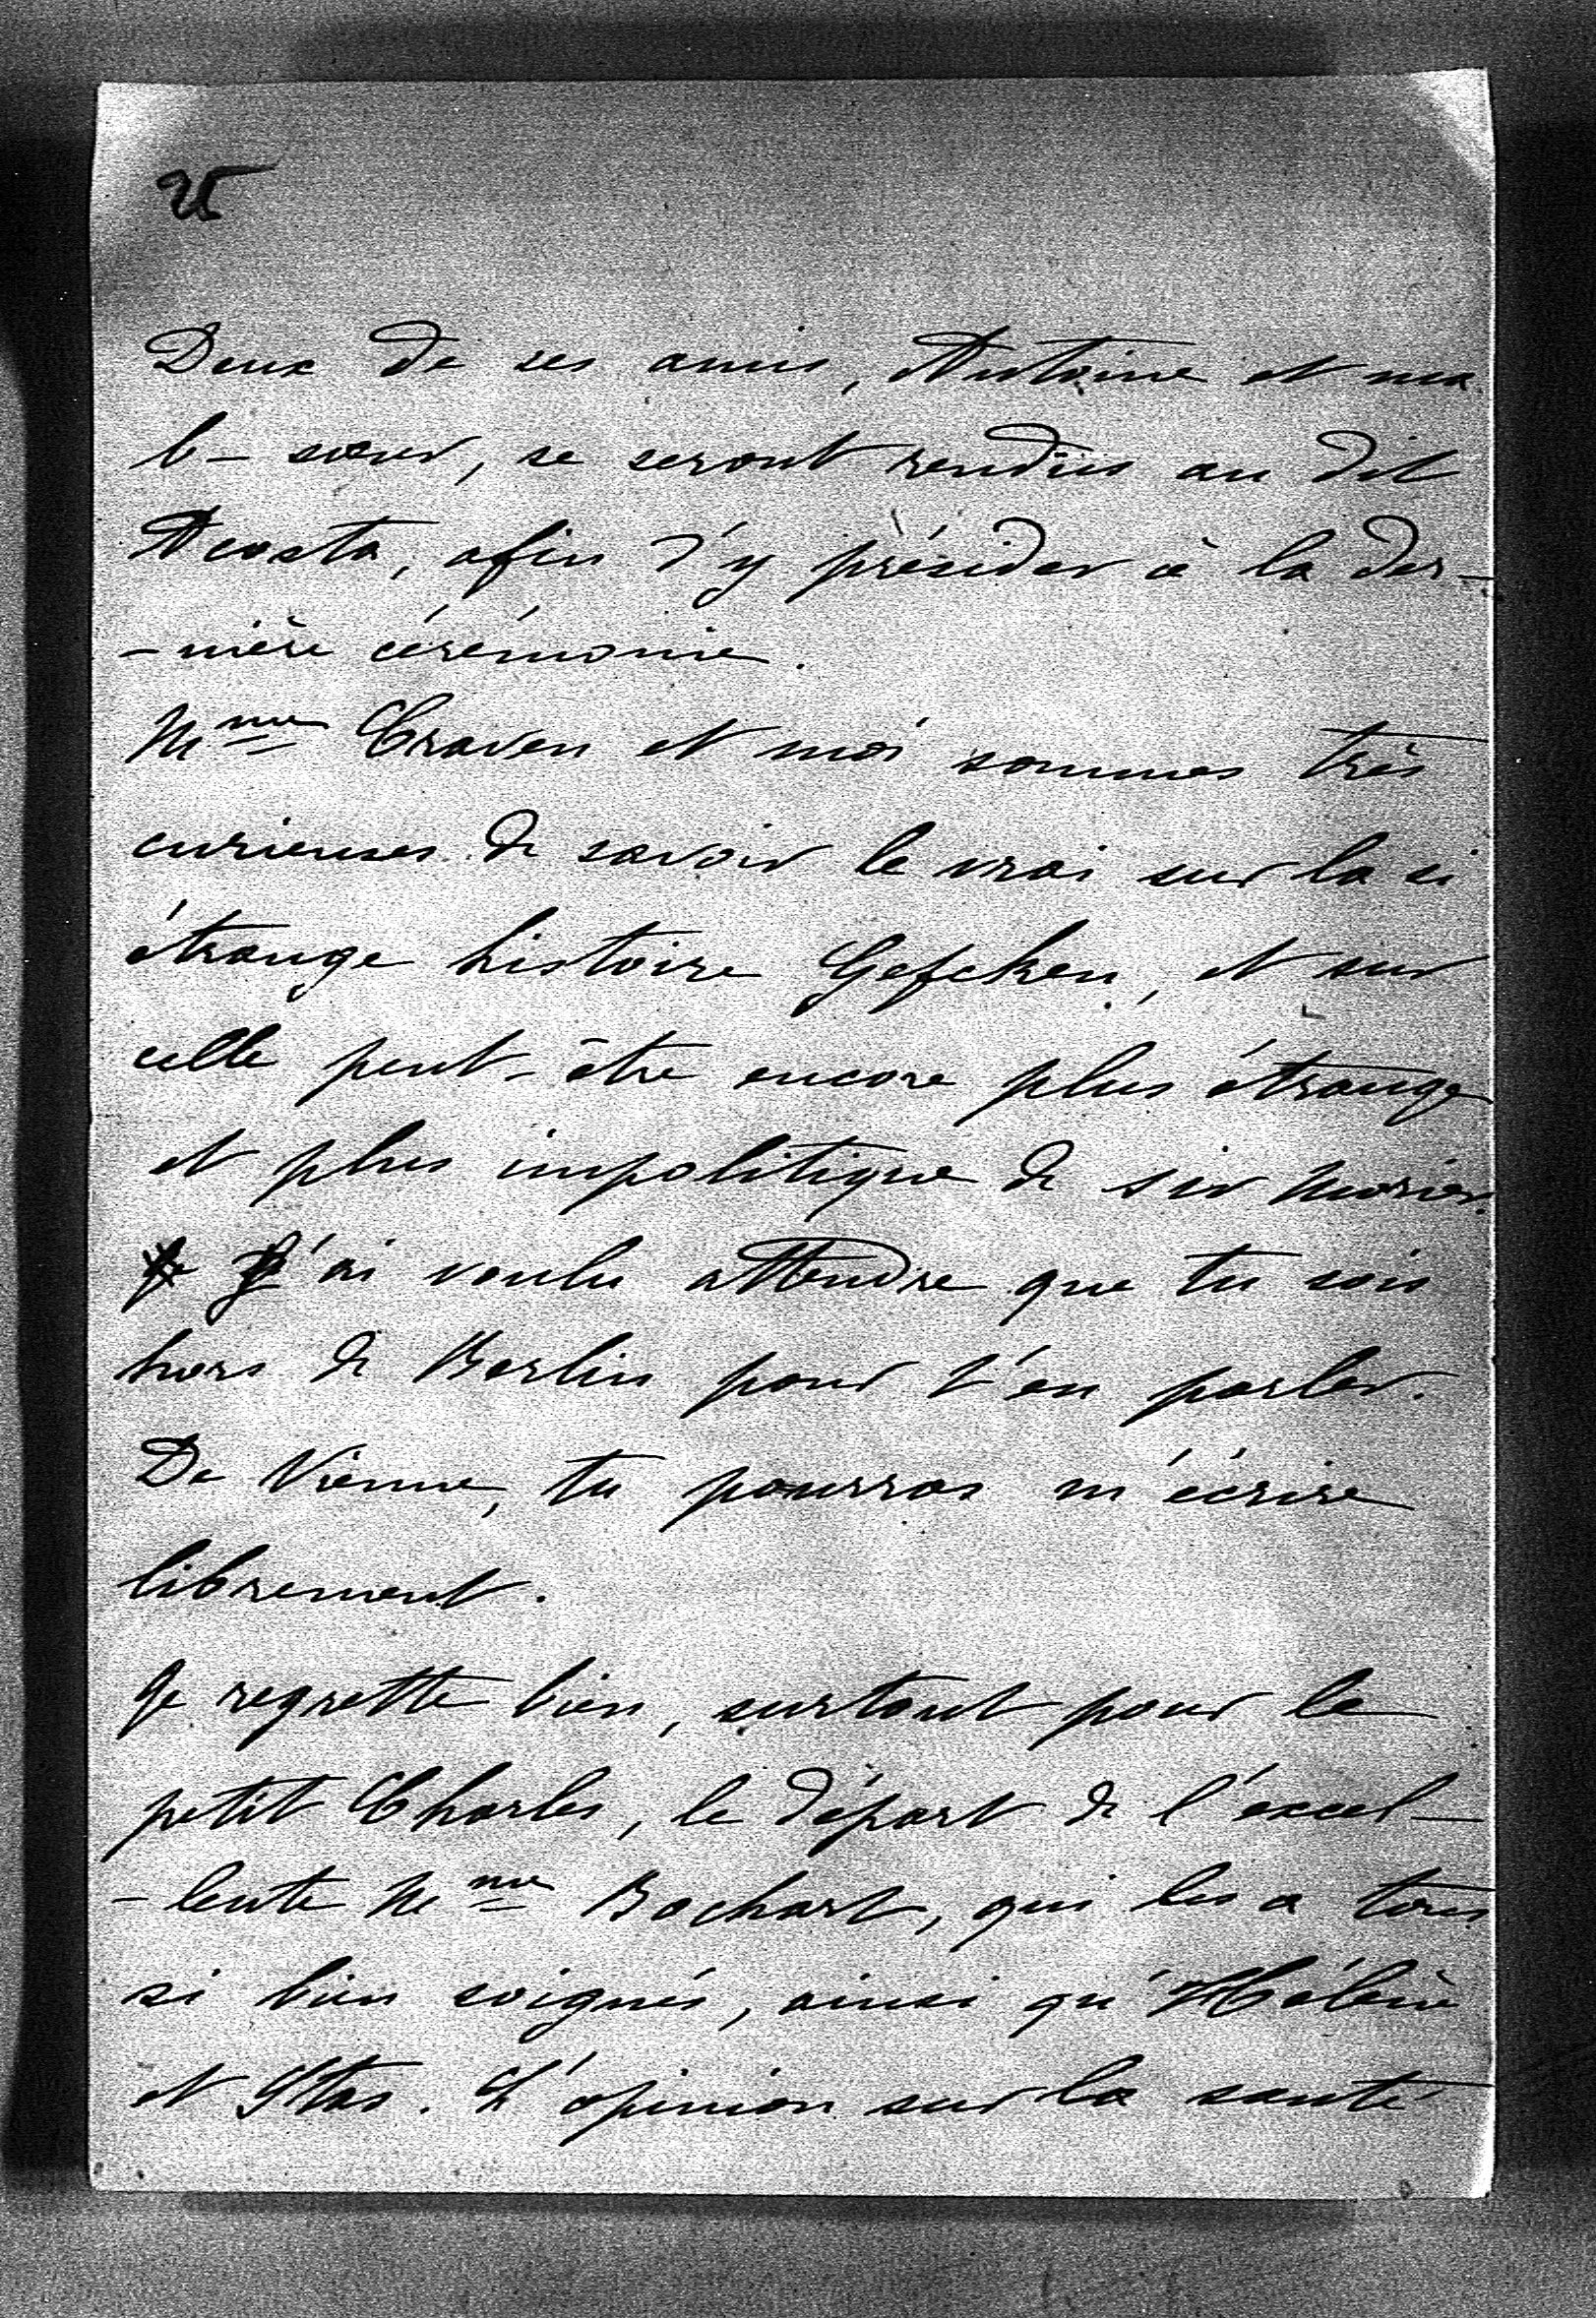 25
Deux de ses amis, Antoine et ma
b- sœur, se seront rendus au dit
Acosta, afin d'y présider à la der-
-nière cérémonie.
Mme Craven et moi sommes très
curieuses de savoir le vrai sur la si
étrange histoire Gefcken, et sur
celle peut-être encore plus étrange
et plus impolitique de sir Morier.
J'ai voulu attendre que tu sois
hors de Berlin pour t'en parler.
De Vienne, tu pourras m'écrire
librement.
Je regrette bien, surtout pour le
petit Charles, le départ de l'excel-
-lente Mme Bochart, qui les a tous
si bien soignés, ainsi qu'Hélène
et Stas. L'opinion sur la santé